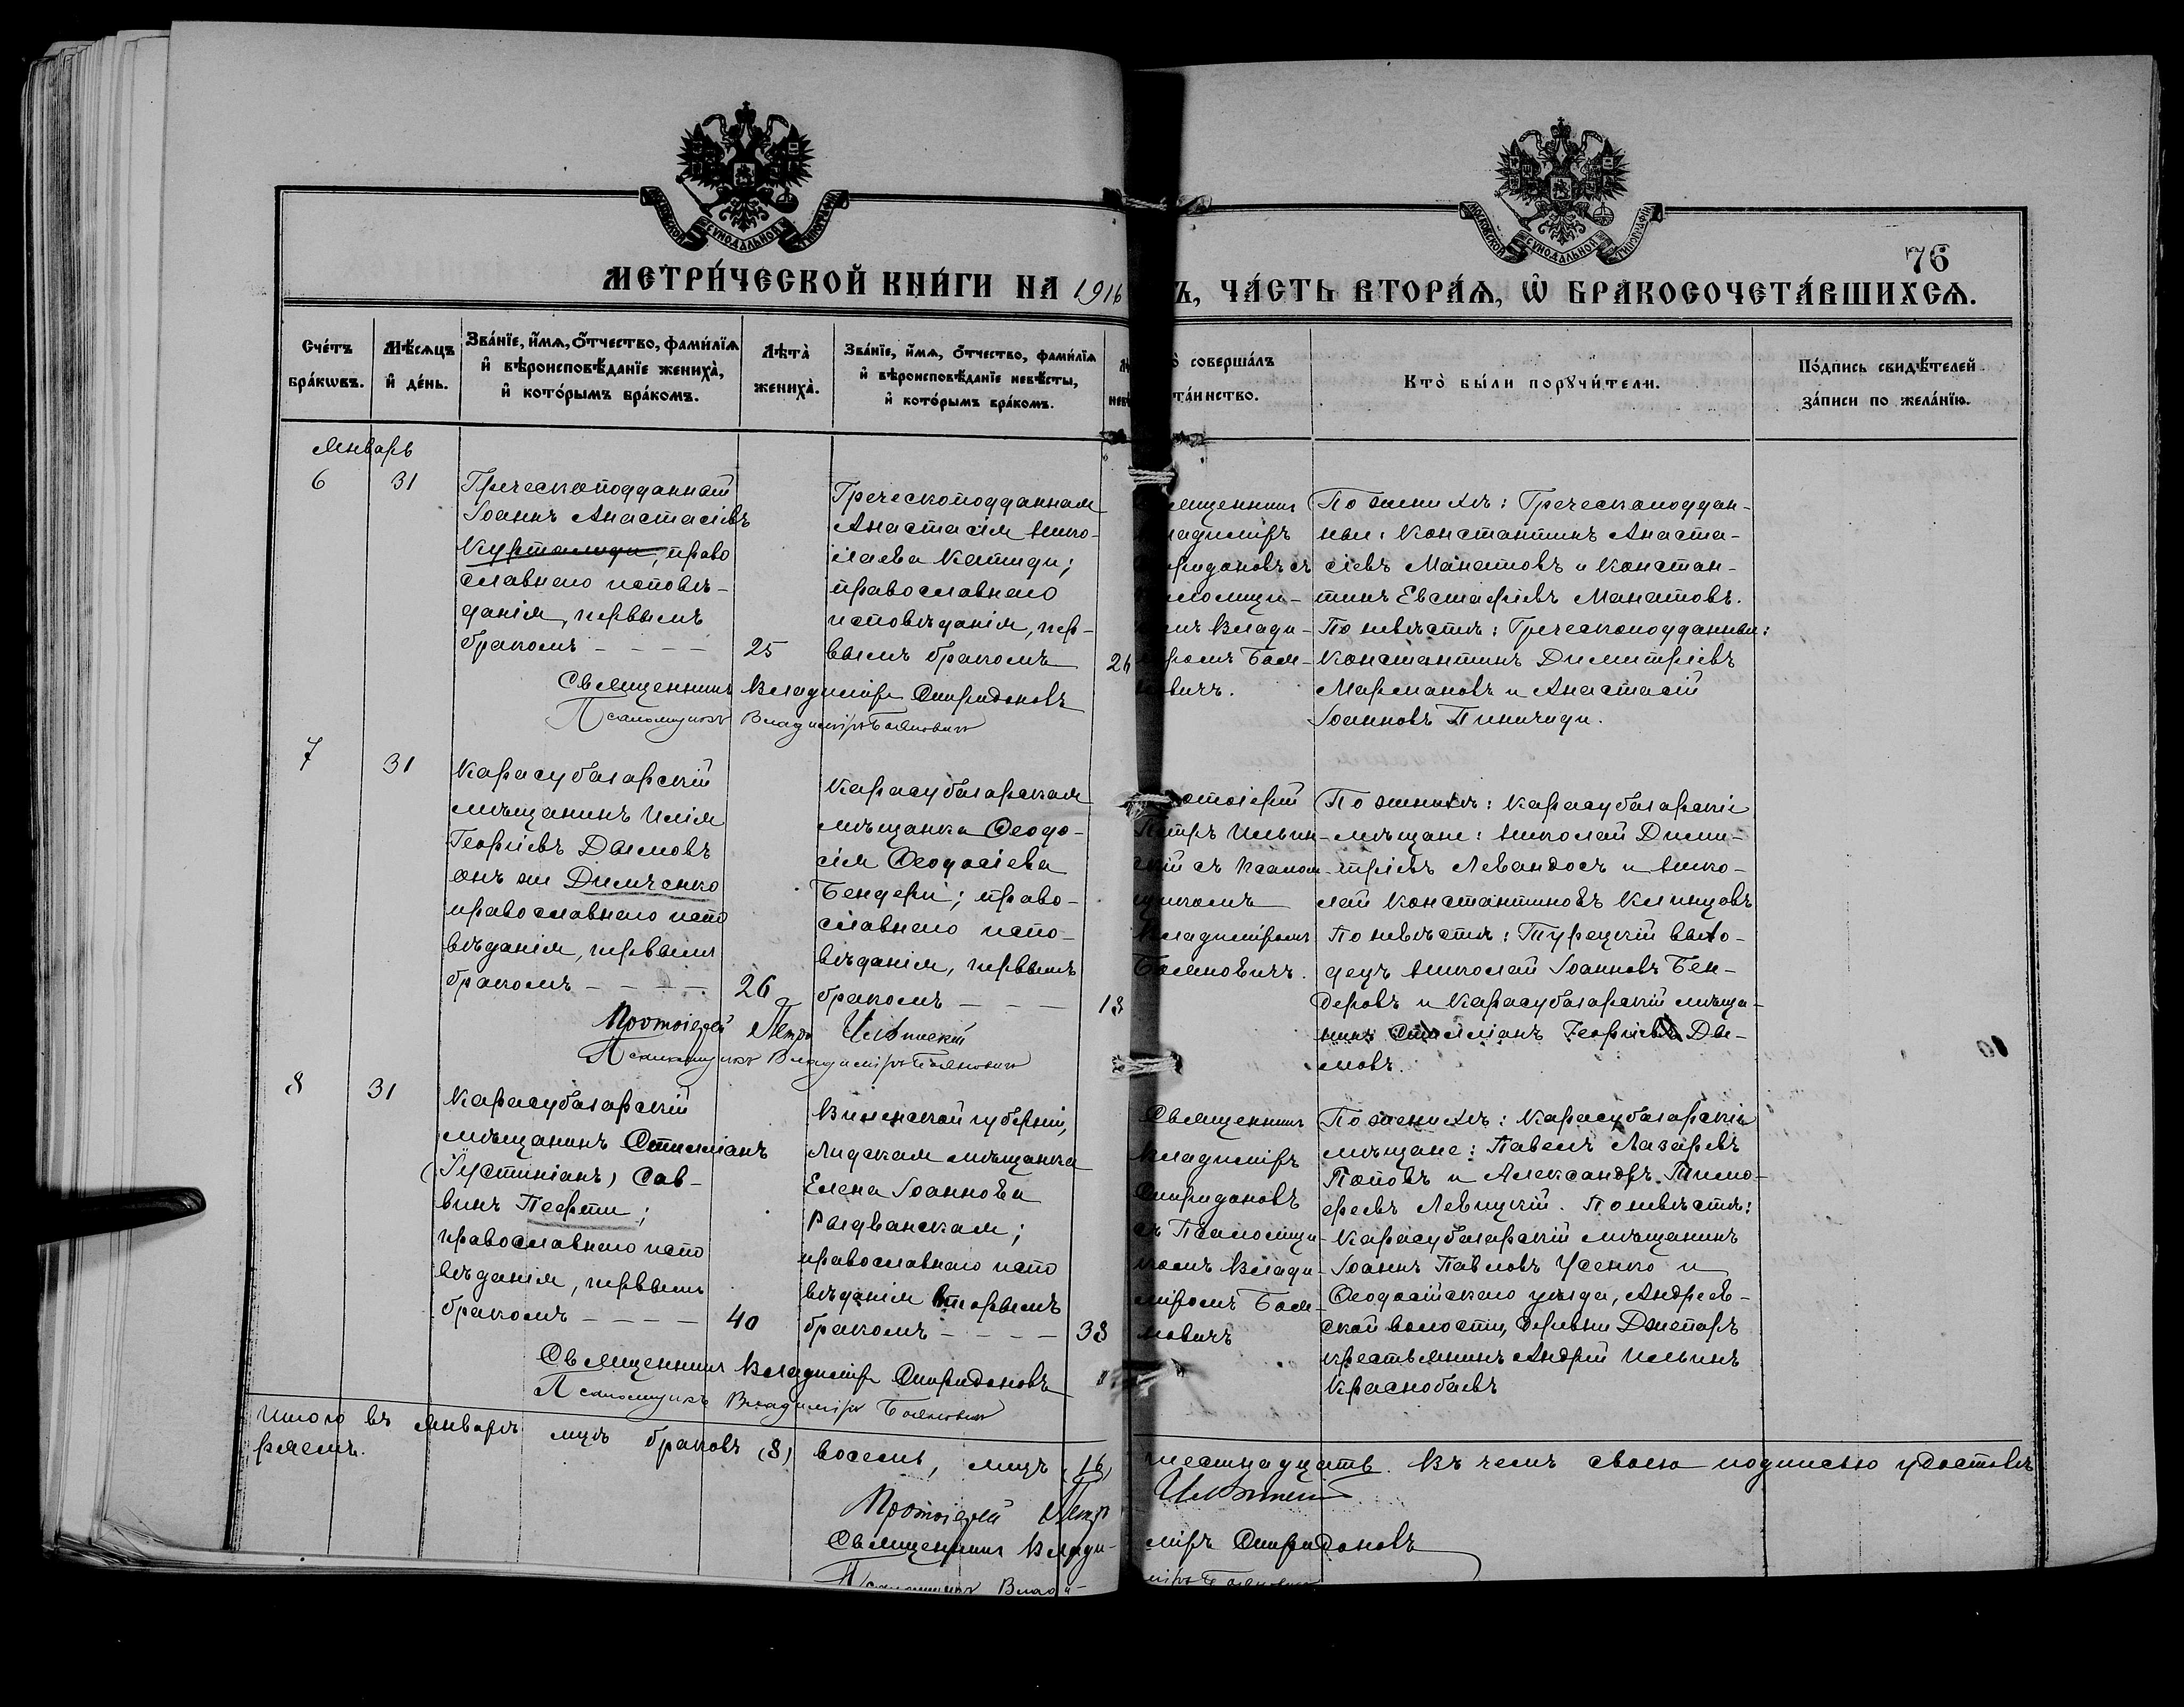 МОСКОВСКОЙ СѴНОДАЛЬНОЙ ТИПОГРАФІИ
МОСКОВСКОЙ СѴНОДАЛЬНОЙ ТИПОГРАФІИ
76
МЕТРИ́ЧЕСКОЙ КНИ́ГИ НА 1916
Ъ, ЧА́СТЬ ВТОРА́Ѧ, Ѡ҆ БРАКОСОЧЕТА́ВШИХСѦ.
Сче́тъ
бра́кѡвъ.
Мѣ́сѧцъ
и҆ де́нь.
Зва́нїе, и҆́мѧ, ѻ҆́тчество, фами́лїѧ
и҆ вѣроисповѣ́данїе жениха̀,
и҆ кото́рымъ бра́комъ.
Лѣ́та
жениха̀.
Зва́нїе, и҆́мѧ, ѻ҆́тчество, фами́лїѧ
и҆ вѣроисповѣ́данїе невѣ́сты,
и҆ кото́рымъ бра́комъ.
о̀ соверша́лъ
та́инство.
Кто̀ бы́ли порꙋчи́тели.
По́дпись свидѣ́телей
за́писи по жела́нїю.
Январь
6
31
Греческоподданный
Іоаннъ Анастасіевъ
Курталиди, право
славнаго исповѣ-
данія, первымъ
бракомъ - - - -
25
Греческоподданная
Анастасія Нико-
лаева Катиди;
православнаго
исповѣданія, пер-
вымъ бракомъ
26
ященникъ
ладиміръ
иридоновъ съ
аломщи-
омъ Влади-
іромъ Боя-
овичъ.
По женихѣ: Греческоподдан-
ные: Константинъ Анаста-
сіевъ Манатовъ и Констан-
тинъ Евстафіевъ Манатовъ.
По невѣстѣ: Греческоподданные:
Константинъ Димитріевъ
Мармановъ и Анастасій
Іоанновъ Пиничиди.
Священникъ Владиміръ Спиридоновъ
Псаломщикъ Владиміръ Бояновичъ
7
31
Карасубазарскій
мѣщанинъ Илія
Георгіевъ Дымовъ
онъ же Димченко
православнаго испо
вѣданія, первымъ
бракомъ - - - -
26
Карасубазарская
мѣщанка Ѳеодо-
сія Ѳеодосіева
Бендери; право-
славнаго испо-
вѣданія, первымъ
бракомъ - - -
18
отоіерей
Петръ Ильин-
скій съ псалом-
щикомъ
Владиміромъ
Бояновичъ.
По женихѣ: Карасубазарскіе
мѣщане: Николай Дими-
тріевъ Левандосъ и Нико-
лай Константиновъ Клинцовъ
По невѣстѣ: Турецкій выхо-
децъ Николай Іоанновъ Бен-
деровъ и Карасубазарскій мѣща-
нинъ Стиліанъ Георгіевъ Ды-
мовъ.
Протоіерей Петръ Ильинскій
Псаломщикъ Владиміръ Бояновичъ
8
31
Карасубазарскій
мѣщанинъ Стиліанъ
(Устиніанъ) Сав-
винъ Пефти;
православнаго испо
вѣданія, первымъ
бракомъ - - - -
40
Виленской губерніи,
Лидская мѣщанка
Елена Іоаннова
Радванская;
православнаго испо
вѣданія вторымъ
бракомъ - - - -
38
Священникъ
Владиміръ
Спиридоновъ
съ Псаломщи-
комъ Влади-
міромъ Боя-
новичъ
По женихѣ: Карасубазарскіе
мѣщане: Павелъ Лазаревъ
Поповъ и Александръ Тимо-
феевъ Левицкій. По невѣстѣ:
Карасубазарскій мѣщанинъ
Іоаннъ Павловъ Усенко и
Ѳеодосійскаго уѣзда, Андреев-
ской волости, деревни Джепаръ
крестьянинъ Андрей Ильинъ
Краснобаевъ
Священникъ Владиміръ Спиридоновъ
Псаломщикъ Владиміръ Бояновичъ
Итого въ Январѣ мцѣ браковъ (8) восемь, лицъ (16) шестнадцать. Въ чемъ своею подписью удостовѣ
ряемъ.
Протоіерей Петръ Ильинскій
Священникъ Влади-міръ Спиридоновъ
Псаломщикъ Влади-міръ Бояновичъ